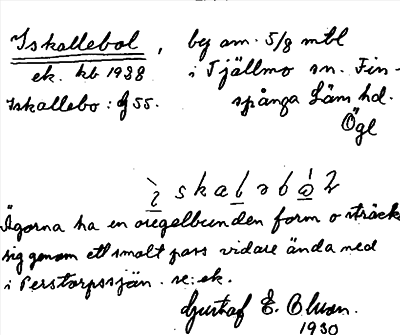 Iskallebol, beg am. 5/8 mtl
ek. kb 1938 i Tjällmo sn. Fin-
Iskallebo: G 55. spånga Läns hd.
Ögl
ìskaləbə́ɫ
Ägorna ha en oregelbunden form o sträck
sig genom ett smalt pass vidare ända ned
i Perstorpssjön. se: ek.
Gustaf E.
1930